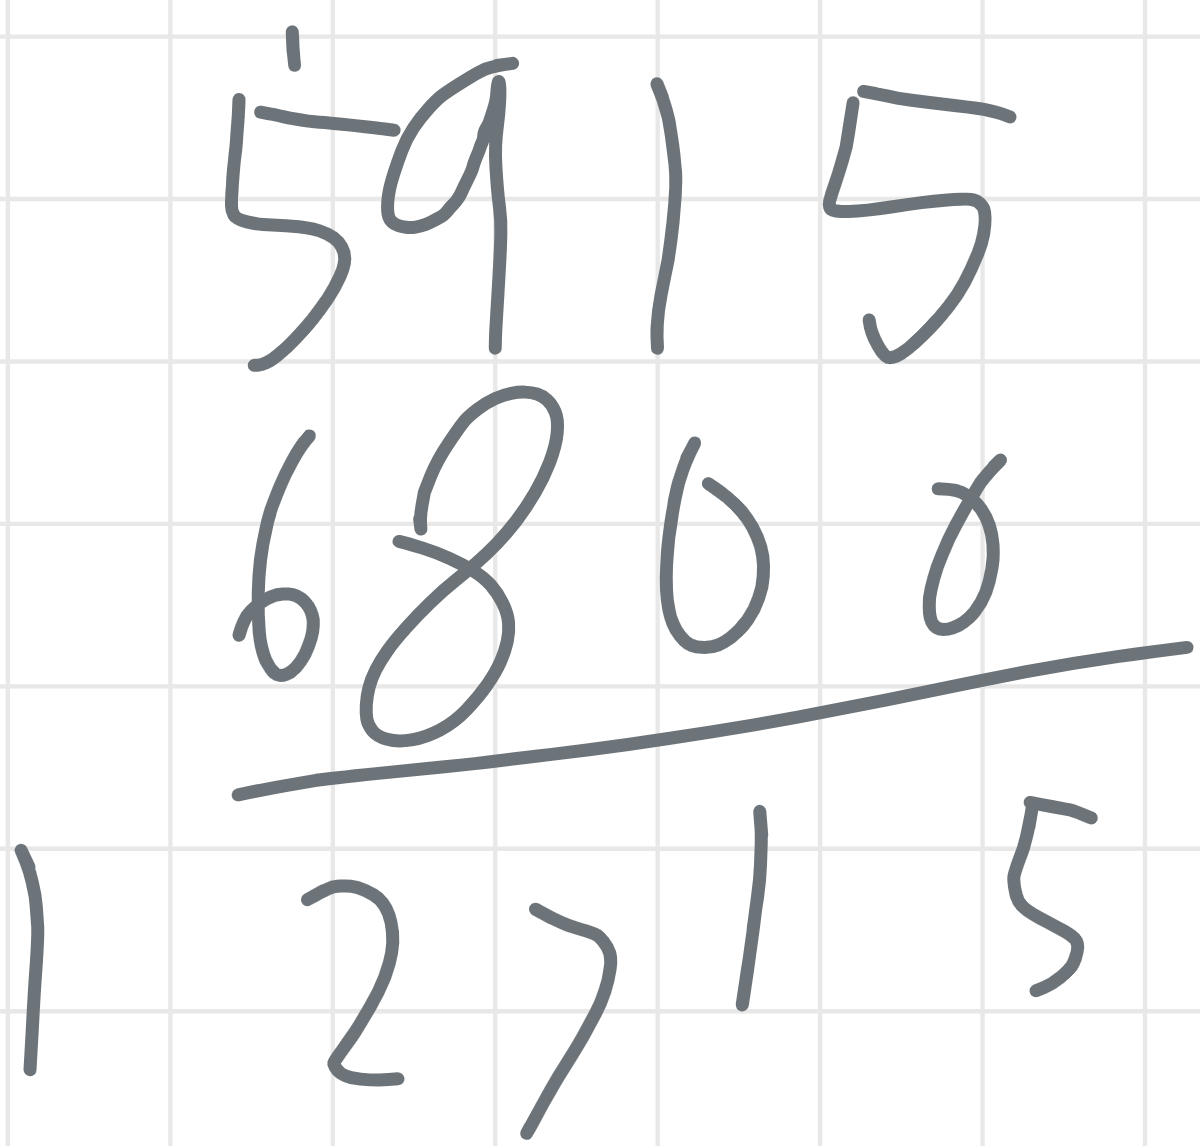 1
5915
6800
12715